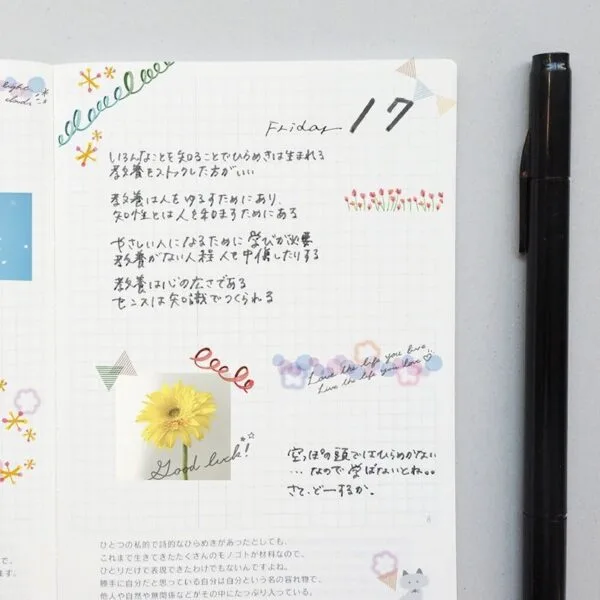 light
clouds
Friday 17
いろんなことを知ることでひらめきは生まれる
教養をストックした方がいい
教養は人をゆるすためにあり、
知性とは人を和ますためにある
やさしい人になるために学びが必要
教養がない人程人を中傷したりする
教養は心の広さである
センスは知識でつくられる
Love the life you live.
Live the life you love
Good luck!
空っぽの頭ではひらめかない
...なので学ばないとね。。
さて、どーするか。
8
ひとつの私的で詩的なひらめきがあったとしても、
これまで生きてきたたくさんのモノゴトが材料なので、
ひとりだけで表現できたわけでもないんですよね。
勝手に自分だと思っている自分は自分という名の容れ物で、
他人や自然や無関係などがその中にたっぷり入っている。
で、
ます。